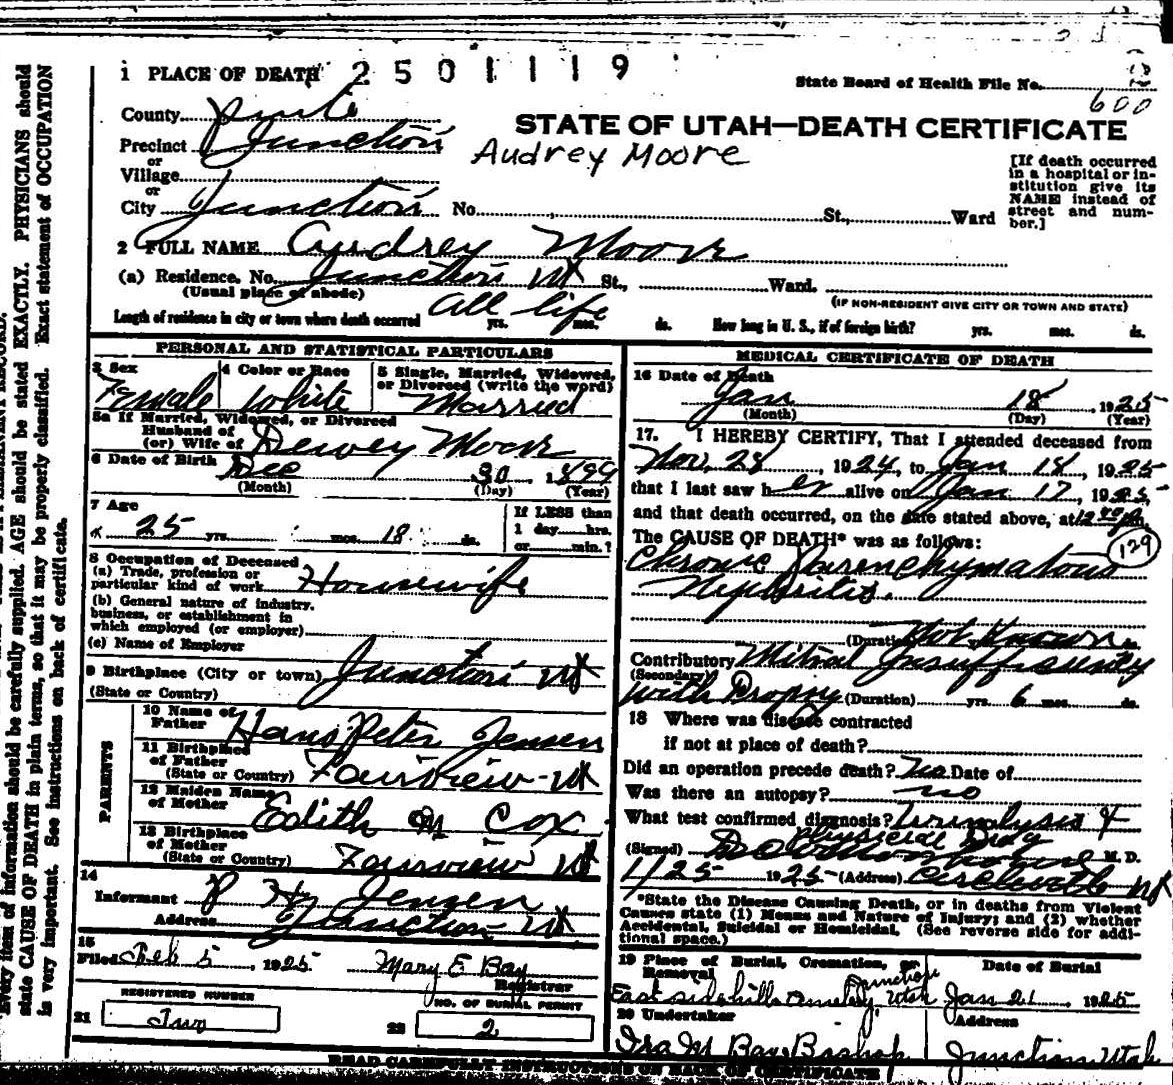 1 PLACE OF DEATH 2501119
State Board of Health File No. 2
600
County Piute
STATE OF UTAH—DEATH CERTIFICATE
Precinct Junction
Audrey Moore
or
Village
or
City Junction No. St., Ward
[If death occurred
in a hospital or in-
stitution give its
NAME instead of
street and num-
ber.]
2 FULL NAME Audrey Moore
(a) Residence. No. Junction Ut St., Ward.
(Usual place of abode) (IF NON-RESIDENT GIVE CITY OR TOWN AND STATE)
Length of residence in city or town where death occurred All life yrs. mos. ds. How long in U. S., if of foreign birth? yrs. mos. ds.
PERSONAL AND STATISTICAL PARTICULARS
3 Sex
Female
4 Color or Race
White
5 Single, Married, Widowed,
or Divorced (write the word)
Married
5a If Married, Widowed, or Divorced
Husband of
(or) Wife of Dewey Moore
6 Date of Birth Dec 30 1899
(Month) (Day) (Year)
7 Age
25 yrs. mos. 18 ds.
If LESS than
1 day hrs.
or min.?
8 Occupation of Deceased
(a) Trade, profession or
particular kind of work Housewife
(b) General nature of industry,
business, or establishment in
which employed (or employer)
(c) Name of Employer
9 Birthplace (City or town) Junction Ut
(State or Country)
PARENTS
10 Name of
Father Hans Peter Jensen
11 Birthplace
of Father
(State or Country) Fairview Ut
12 Maiden Name
of Mother Edith M Cox
13 Birthplace
of Mother
(State or Country) Fairview Ut
14
Informant P H Jensen
Address Junction Ut
15
Filed Feb 5, 1925 Mary E Bay
Registrar
REGISTERED NUMBER
21 Two
NO. OF BURIAL PERMIT
22 2
MEDICAL CERTIFICATE OF DEATH
16 Date of Death
Jan 18, 1925
(Month) (Day) (Year)
17. I HEREBY CERTIFY, That I attended deceased from
Nov. 28, 1924, to Jan 18, 1925
that I last saw her alive on Jan 17, 1925,
and that death occurred, on the date stated above, at 12 40 P.m.
The CAUSE OF DEATH* was as follows:
129
Chronic Parenchymatous
Nephritis.
(Duration) Not Known
Contributory Mitral Insufficiency
(Secondary)
with Dropsy (Duration) yrs. 6 mos. ds.
18 Where was disease contracted
if not at place of death?
Did an operation precede death? No Date of
Was there an autopsy? no
What test confirmed diagnosis? Urinalysis &
Physical Diag
(Signed) M. D.
1/25 1925 (Address) Circleville Ut
*State the Disease Causing Death, or in deaths from Violent
Causes state (1) Means and Nature of Injury; and (2) whether
Accidental, Suicidal or Homicidal. (See reverse side for addi-
tional space.)
19 Place of Burial, Cremation, or
Removal
Junction
East side hills Cemetery, Utah
Date of Burial
Jan 21 1925
20 Undertaker
Ira M Bay, Bishop
Address
Junction Utah
READ CAREFULLY INSTRUCTIONS ON BACK OF CERTIFICATE
Every item of information should be carefully supplied. AGE should be stated EXACTLY. PHYSICIANS should
state CAUSE OF DEATH in plain terms, so that it may be properly classified. Exact statement of OCCUPATION
is very important. See instructions on back of certificate.